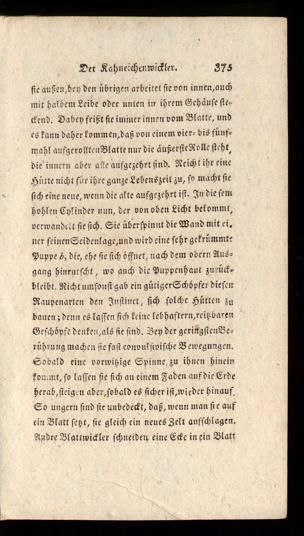 Der Kahneichenwickler. 375
sie außen, bey den übrigen arbeitet sie von innen, auch
mit halbem Leibe oder unten in ihrem Gehäuse ste-
ckend. Dabey frißt sie immer innen vom Blatte, und
es kann daher kommen, daß von einem vier- bis fünf-
mahl aufgerollten Blatte nur die äußerste Rolle steht,
die innern aber alle aufgezehrt sind. Reicht ihr eine
Hütte nicht für ihre ganze Lebenszeit zu, so macht sie
sich eine neue, wenn die alte aufgezehrt ist. In diesem
hohlen Cylinder nun, der von oben Licht bekommt,
verwandelt sie sich. Sie überspinnt die Wand mit ei-
ner feinen Seidenlage, und wird eine sehr gekrümmte
Puppe 6, die, ehe sie sich öffnet, nach dem obern Aus-
gang hinrutscht, wo auch die Puppenhaut zurück-
bleibt. Nicht umsonst gab ein gütiger Schöpfer diesen
Raupenarten den Instinct, sich solche Hütten zu
bauen; denn es lassen sich keine lebhaftern, reitzbaren
Geschöpfe denken, als sie sind. Bey der geringsten Be-
rührung machen sie fast convulsivische Bewegungen.
Sobald eine vorwitzige Spinne zu ihnen hinein
kommt, so lassen sie sich an einem Faden auf die Erde
herab, steigen aber, sobald es sicher ist, wieder hinauf.
So ungern sind sie unbedeckt, daß, wenn man sie auf
ein Blatt setzt, sie gleich ein neues Zelt aufschlagen.
Andre Blattwickler schneiden eine Ecke in ein Blatt